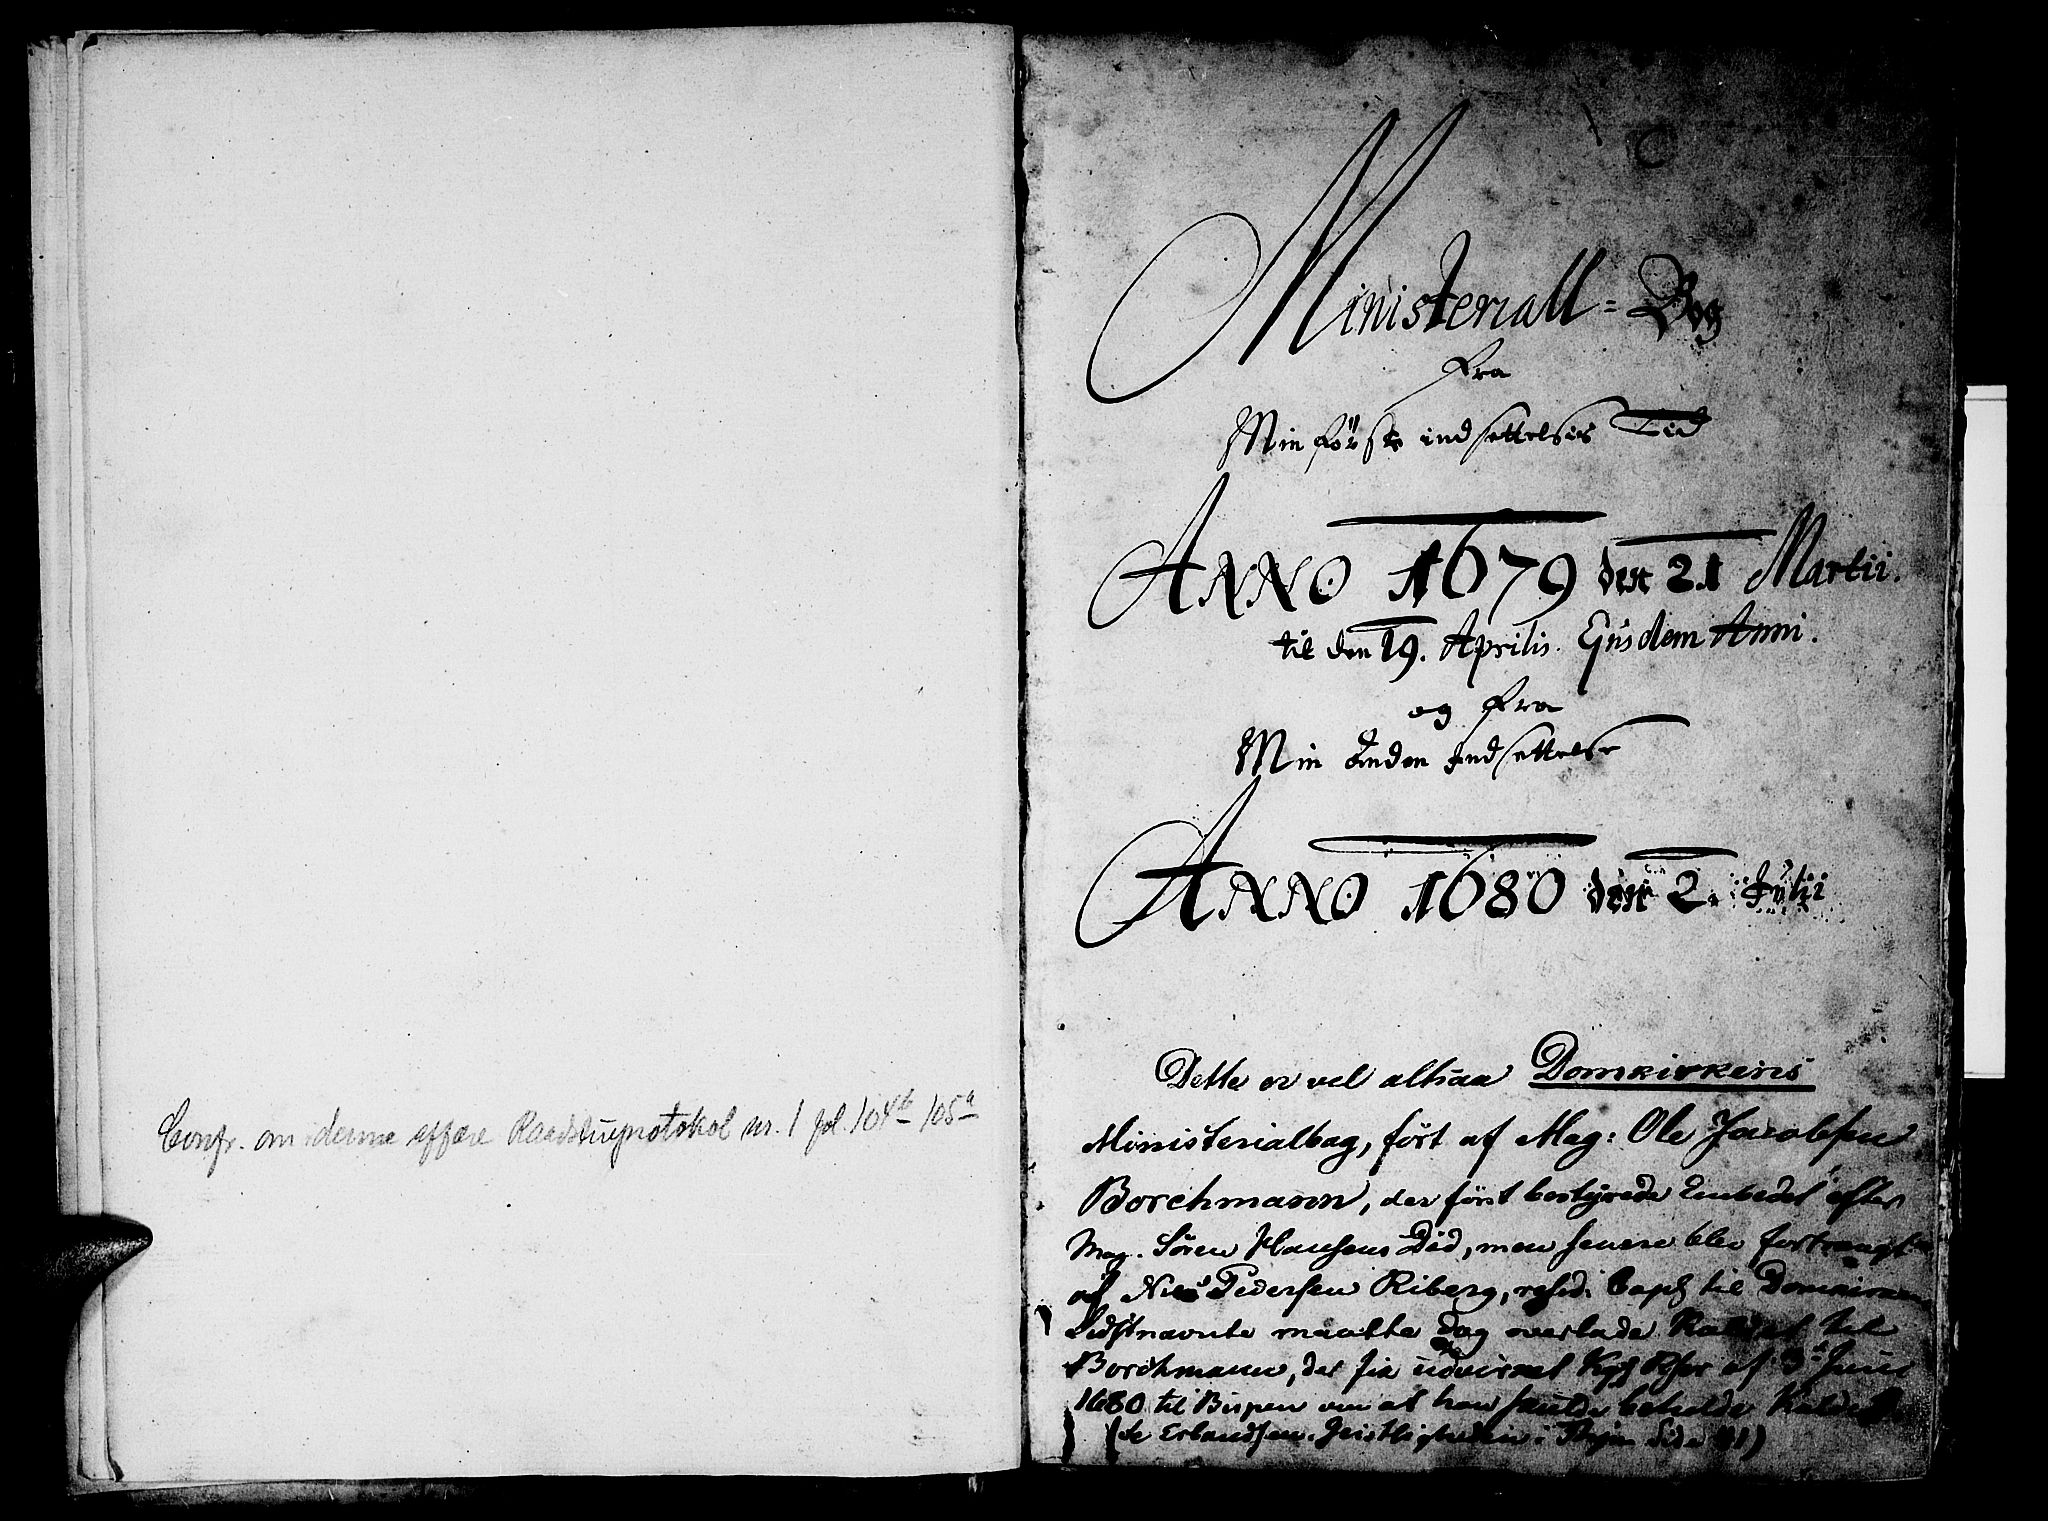 Confr. om denne affære Raadstueprotokol nr. 1 fol. 104b 105a
Ministeriall=Bog
Fra
Min förste indsettelsis Tid
ANNO 1679 den 21 Martii.
til den 19. Aprilis. Ejusdem Anni.
og Fra
Min Anden Indsettelse
ANNO 1680 den 2. Julii
Dette er vel altsaa Domkirkens
Ministerialbog, ført af Mag: Ole Jacobsen
Borchmann, der først bestyrede Embedet efter
Mag. Sören Hansens Död, men senere blev fortrængt
af Niels Pedersen Riberg, resid. Cap. til Domkirken
Sidstnævnte maatte dog overlade Kaldet til
Borchmann, der fik udvirket Kgl. af 3d Juni
1680 til Bispen om at han skulde beholde Kaldet
(Se Erlandsen. Geistligheden i Thjem Side 81)